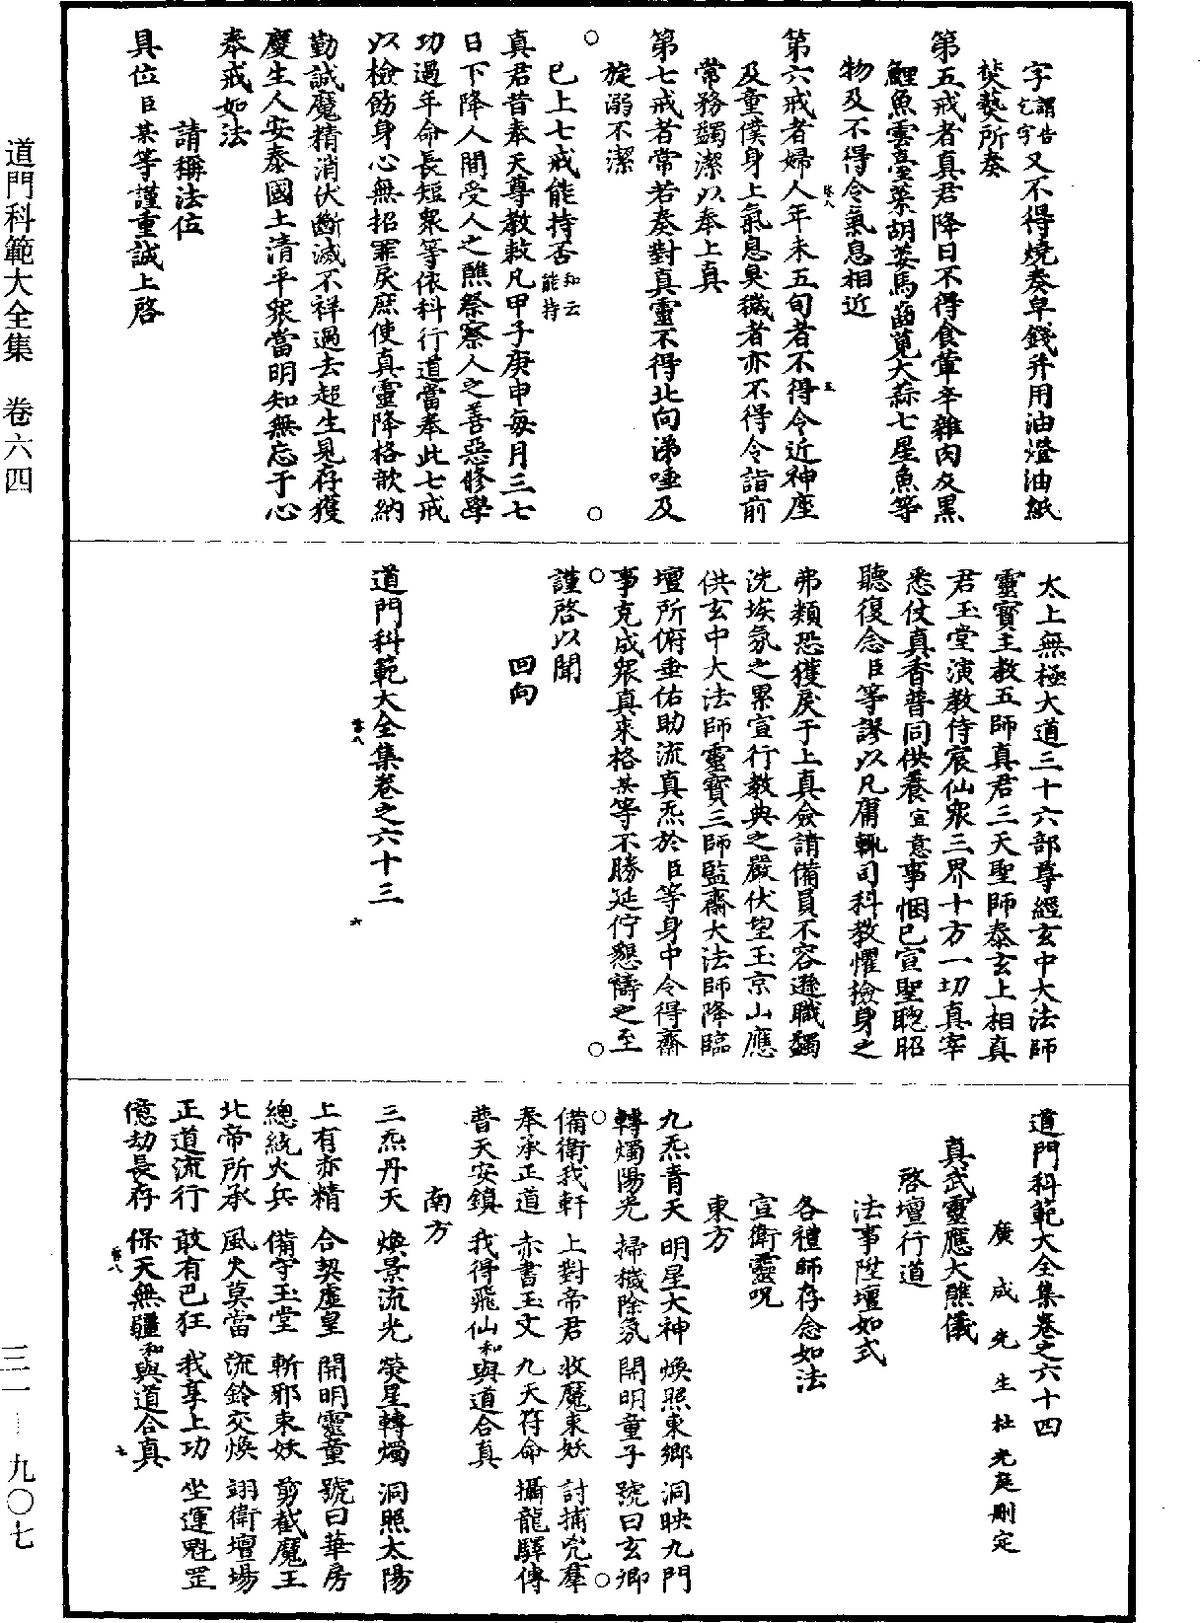 字謂告乞字又不得燒奏皁錢并用油燈油紙
焚爇所奏
第五戒者真君降日不得食葷辛雜肉及黑
鯉魚雲臺菜胡荽馬齒莧大蒜七星魚等
物及不得令氣息相近
第六戒者婦人年未五旬者不得令近神座
及童僕身上氣息臭穢者亦不得令詣前
常務蠲潔以奉上真
第七戒者常若奏對真靈不得北向涕唾及
旋溺不潔
已上七戒能持否知云能持
真君昔奉天尊教敕凡甲子庚申每月三七
日下降人間受人之醮祭察人之善惡修學
功過年命長短眾等依科行道當奉此七戒
以檢飭身心無招罪戾庶使真靈降格歆納
勤誠魔精消伏斷滅不祥過去超生見存獲
慶生人安泰國土清平眾當明知無忘于心
奉戒如法
請稱法位
具位臣某等謹重誠上啓
太上無極大道三十六部尊經玄中大法師
靈寶主教五師真君三天聖師泰玄上相真
君玉堂演教侍宸仙眾三界十方一切真宰
悉仗真香普同供養宣意事悃已宣聖聰昭
聽復念臣等謬以凡庸輒司科教懼撿身之
弗類恐獲戾于上真僉請備員不容遜職蠲
洗埃氛之累宣行教典之嚴伏望玉京山應
供玄中大法師靈寶三師監齋大法師降臨
壇所俯垂佑助流真炁於臣等身中令得齋
事克成眾真來格某等不勝延佇懇禱之至
謹啓以聞
回向
道門科範大全集卷之六十三
道門科範大全集卷之六十四
廣成先生杜光庭刪定
真武靈應大醮儀
啓壇行道
法事陞壇如式
各禮師存念如法
宣衛靈呪
東方
九炁青天 明星大神 煥照東鄉 洞映九門
轉燭陽光 掃穢除氛 開明童子 號曰玄卿
備衛我軒 上對帝君 收魔束妖 討捕兇羣
奉承正道 赤書玉文 九天符命 攝龍驛傳
普天安鎮 我得飛仙和與道合真
南方
三炁丹天 煥景流光 熒星轉燭 洞照太陽
上有赤精 合契虛皇 開明靈童 號曰華房
總統火兵 備守玉堂 斬邪束妖 剪截魔王
北帝所承 風火莫當 流鈴交煥 翊衛壇場
正道流行 敢有巴狂 我享上功 坐運魁罡
億劫長存 保天無疆和與道合真
道門科範大全集 卷六四
三一—九〇七